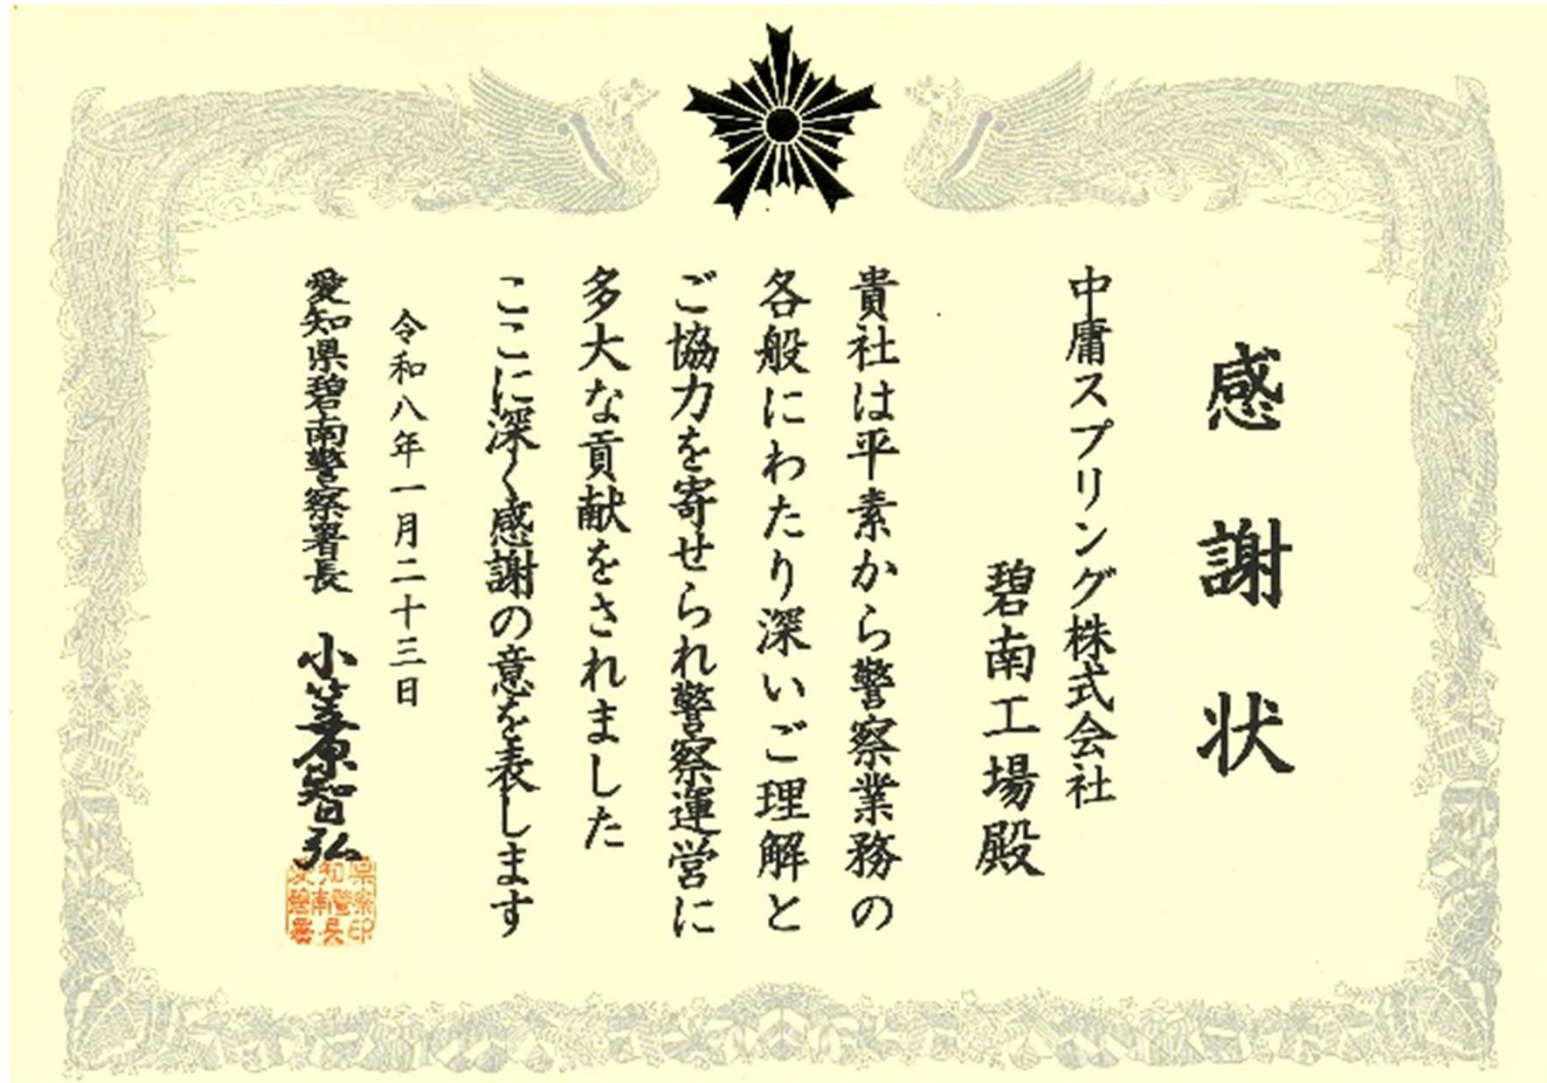 感謝状
中庸スプリング株式会社
碧南工場殿
貴社は平素から警察業務の
各般にわたり深いご理解と
ご協力を寄せられ警察運営に
多大な貢献をされました
ここに深く感謝の意を表します
令和八年一月二十三日
愛知県碧南警察署長 小笠原智弘